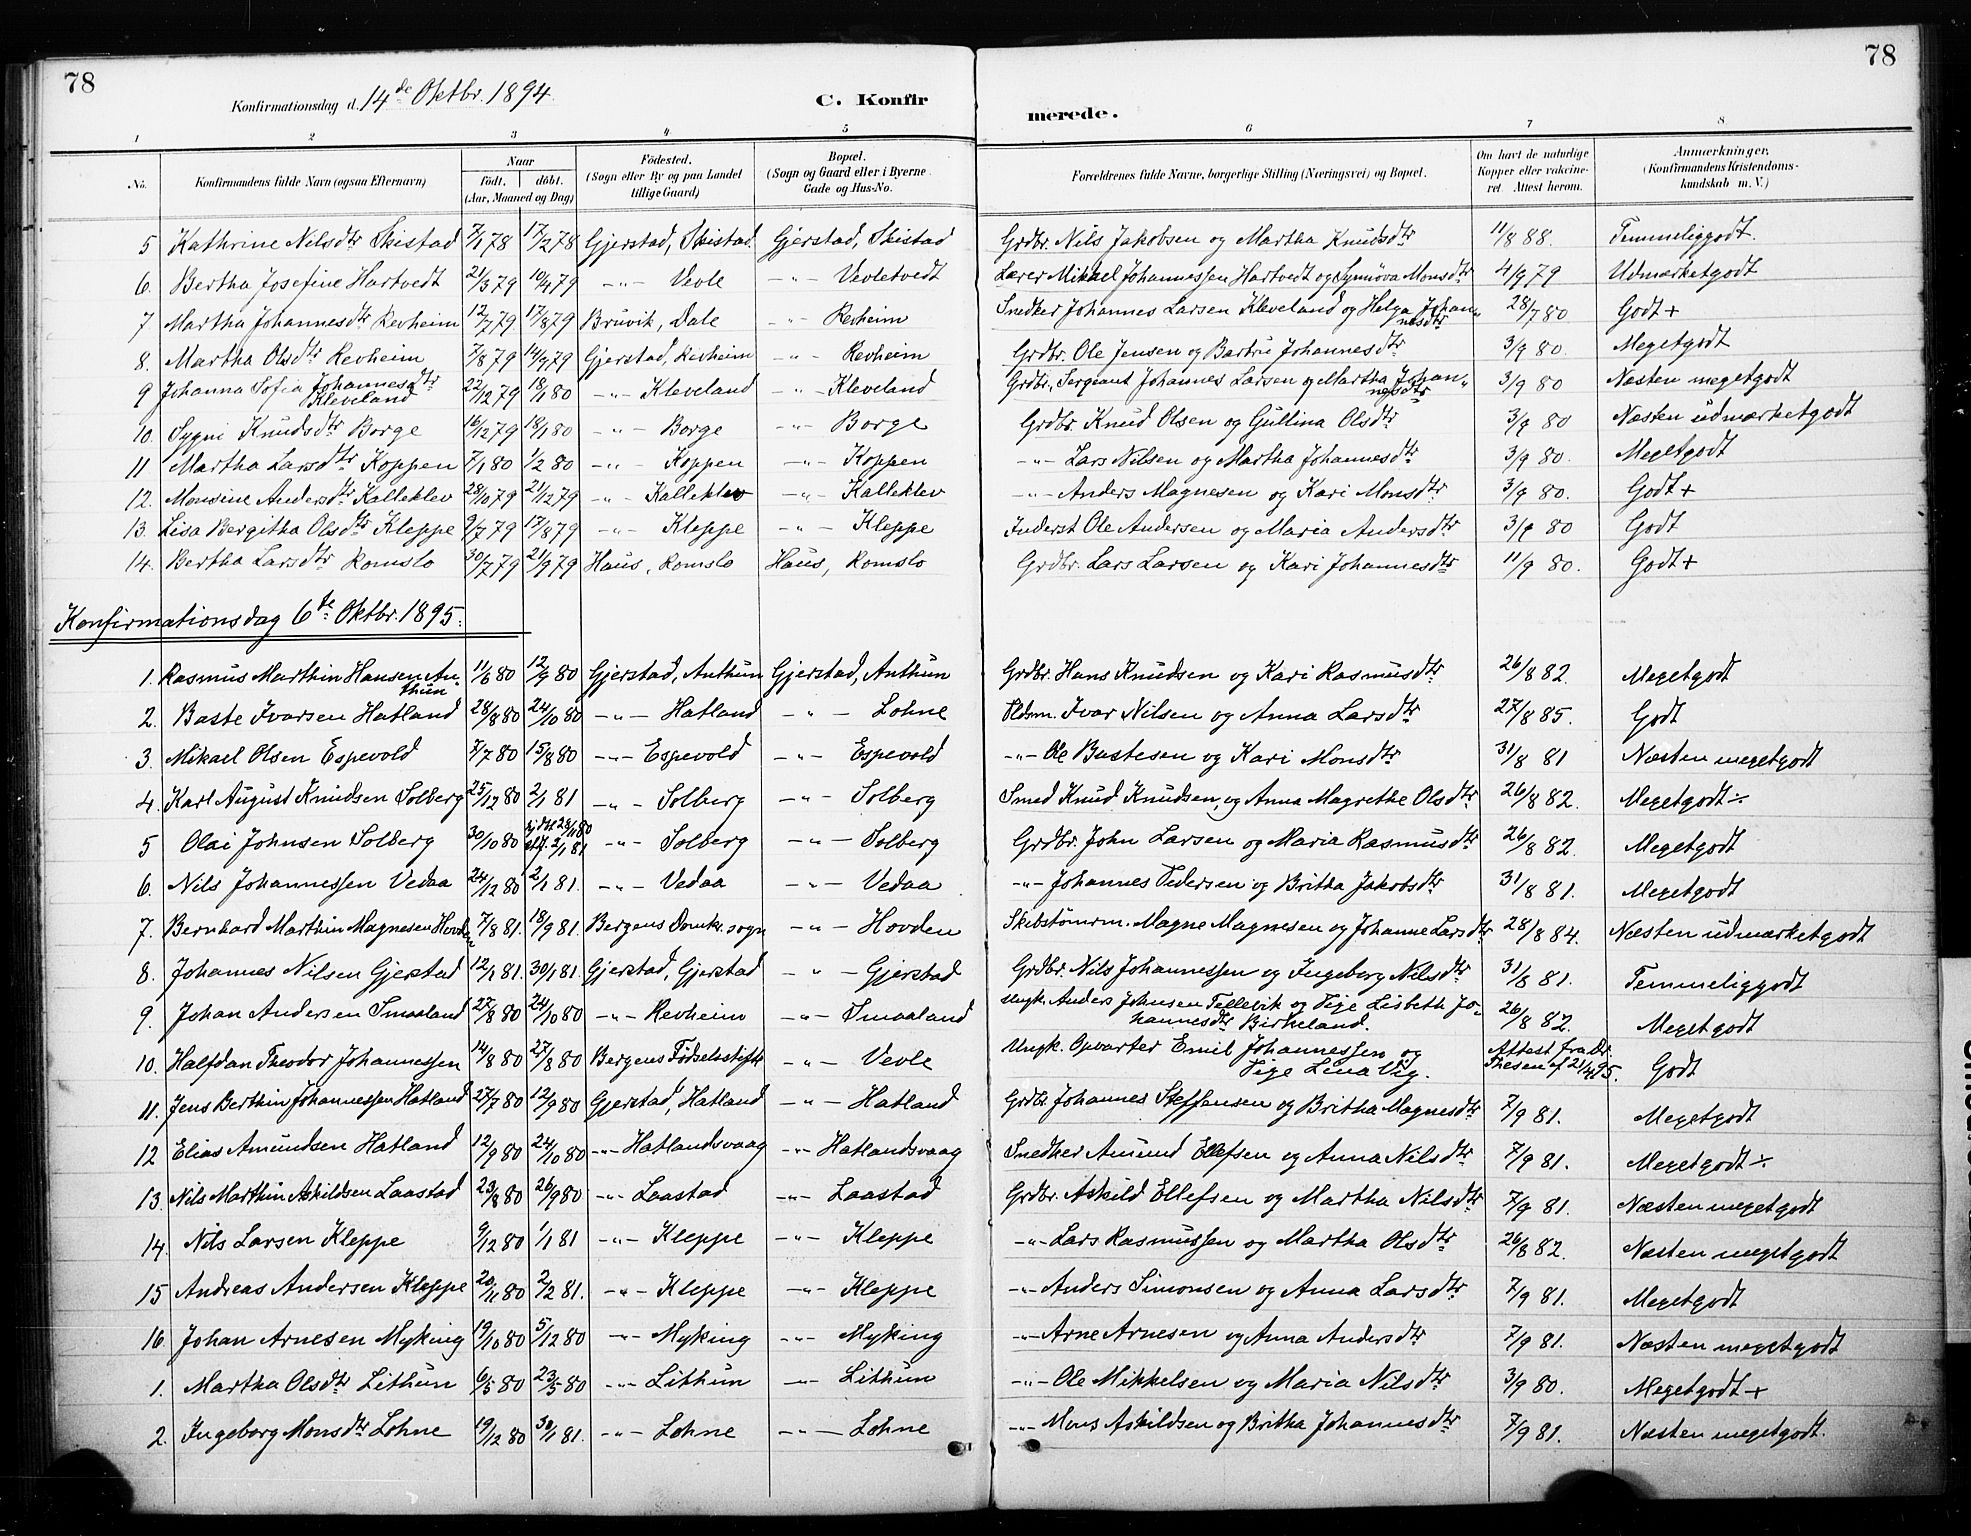 78
78
Konfirmationsdag d. 14de Oktbr. 1894.
C. Konfir
merede.
1 2 3 4 5 6 7 8
No.
Konfirmandens fulde Navn (ogsaa Efternavn)
Naar
Födt. döbt.
(Aar, Maaned og Dag)
Födested.
(Sogn eller By og paa Landet
tillige Gaard)
Bopæl.
(Sogn og Gaard eller i Byerne
Gade og Hus-No.
Forældrenes fulde Navne, borgerlige Stilling (Næringsvei) og Bopæl.
Om havt de naturlige
Kopper eller vakcine-
ret. Attest herom.
Anmærkninger.
(Konfirmandens Kristendoms-
kundskab m. V.)
5 Kathrine Nilsdtr Skistad 7/1 78 17/2 78 Gjerstad, Skistad Gjerstad, Skistad Grdbr. Nils Jakobsen og Martha Knudsdtr 11/8 88. Temmeliggodt.
6. Bertha Josefine Hartvedt 21/3 79 10/4 79 -"- Vevle -"- Vevletvedt Lærer Mikael Johannessen Hartvedt og Synnöva Monsdtr 4/9 79 Udmærketgodt
7 Martha Johannesdtr Revheim 12/7 79 17/8 79 Bruvik, Dale -"- Revheim Snedker Johannes Larsen Kleveland og Helga Johan-
nesdtr 28/7 80 Godt +
8. Martha Olsdtr Revheim 7/8 79 14/9 79 Gjerstad, Revheim -"- Revheim Grdbr. Ole Jensen og Barbru Johannesdtr 3/9 80. Megetgodt
9 Johanna Sofia Johannesdtr
Kleveland 22/12 79 18/1 80 -"- Kleveland -"- Kleveland Grdbr., Sergiant Johannes Larsen og Martha Johan-
nesdtr 3/9 80 Næsten megetgodt
10. Sygni Knudsdtr Borge 16/12 79 18/1 80 -"- Borge -"- Borge Grdbr. Knud Olsen og Gullina Olsdtr 3/9 80 Næsten udmærketgodt
11 Martha Larsdtr Koppen 7/1 80 1/2 80 -"- Koppen -"- Koppen -"- Lars Nilsen og Martha Johannesdtr 3/9 80. Megetgodt
12. Monsine Andersdtr Kalleklev 28/10 79 21/12 79 -"- Kalleklev -"- Kalleklev -"- Anders Magnesen og Kari Monsdtr 3/9 80. Godt +
13. Lisa Bergitha Olsdtr Kleppe 9/7 79 17/8 79 -"- Kleppe -"- Kleppe Inderst Ole Andersen og Maria Andersdtr 3/9 80 Godt
14. Bertha Larsdtr Romslo 30/7 79 21/9 79 Haus, Romslo Haus, Romslo Grdbr. Lars Larsen og Kari Johannesdtr 11/9 80. Godt +
Konfirmationsdag 6te Oktbr. 1895.
1. Rasmus Marthin Hansen An-
thun 11/6 80 12/9 80 Gjerstad, Anthun Gjerstad, Anthun Grdbr. Hans Knudsen og Kari Rasmusdtr 26/8 82. Megetgodt
2. Baste Ivarsen Hatland 28/8 80 24/10 80 -"- Hatland -"- Lohne Pldsm. Ivar Nilsen og Anna Larsdtr 27/8 85. Godt
3. Mikael Olsen Espevold 7/7 80 15/8 80 -"- Espevold -"- Espevold -"- Ole Bastesen og Kari Monsdtr 31/8 81 Næsten megetgodt
4. Karl August Knudsen Solberg 25/12 80 2/1 81 -"- Solberg -"- Solberg Smed Knud Knudsen, og Anna Magrethe Olsdtr 26/8 82. Megetgodt ÷
5 Olai Johnsen Solberg 30/10 80 2/1 81 -"- Solberg -"- Solberg Grdbr. John Larsen og Maria Rasmusdtr 26/8 82. Megetgodt
6. Nils Johannessen Vedaa 24/12 80 2/1 81. -"- Vedaa -"- Vedaa -"- Johannes Pedersen og Britha Jakobsdtr 31/8 81. Megetgodt
7. Bernhard Marthin Magnesen Hovden 7/8 81 18/9 81. Bergens Domk. sogn -"- Hovden Skibstömrm. Magne Magnesen og Johanne Larsdtr 28/8 84. Næsten udmærketgodt
8. Johannes Nilsen Gjerstad 12/1 81. 30/1 81. Gjerstad, Gjerstad -"- Gjerstad Grdbr. Nils Johannessen og Ingeborg Nilsdtr 31/8 81. Temmeliggodt
9. Johan Andersen Smaaland 27/8 80 24/10 80 -"- Revheim -"- Smaaland Ungk. Anders Johnsen Tellevik og Pige Lisbeth Jo-
hannesdtr Birkeland. 26/8 82. Megetgodt
10. Halfdan Theodor Johannessen 14/8 80 27/8 80 Bergens Fødselsstift. -"- Vevle Ungk. Opvarter Emil Johannessen og
Pige Lina Vig. Attest fra Dr.
Thesen af 21/4 95. Godt
11. Jens Berthin Johannessen Hatland 27/7 80 12/9 80 Gjerstad, Hatland -"- Hatland Grdbr. Johannes Steffensen og Britha Magnesdtr 7/9 81. Megetgodt
12 Elias Amundsen Hatland 12/9 80 24/10 80 -"- Hatlandsvaag -"- Hatlandsvaag Snedker Amund Ellefsen og Anna Nilsdtr 7/9 81. Megetgodt ÷
13. Nils Marthin Askildsen Laastad 23/8 80 26/9 80 -"- Laastad -"- Laastad Grdbr. Askild Ellefsen og Martha Nilsdtr 7/9 81. Næsten megetgodt
14. Nils Larsen Kleppe 9/12 80 1/1 81 -"- Kleppe -"- Kleppe -"- Lars Rasmussen og Martha Olsdtr 26/8 82. Næsten megetgodt
15 Andreas Andersen Kleppe 20/11 80 2/2 81. -"- Kleppe -"- Kleppe -"- Anders Simonsen og Anna Larsdtr 7/9 81. Megetgodt
16. Johan Arnesen Myking 19/10 80 5/12 80 -"- Myking -"- Myking -"- Arne Arnesen og Anna Andersdtr 7/9 81. Næsten megetgodt
1. Martha Olsdtr Lithun 6/5 80 23/5 80 -"- Lithun -"- Lithun -"- Ole Mikkelsen og Maria Nilsdtr 3/9 80. Megetgodt +
2. Ingeborg Monsdtr Lohne 19/12 80 30/1 81. -"- Lohne -"- Lohne -"- Mons Askildsen og Britha Johannesdtr 7/9 81. Næsten megetgodt.